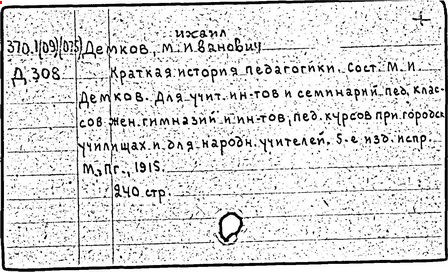 ихаил
370.1(09)(075) Демков, М. Иванович
Д 308 Краткая история педагогики. Сост. М. И.
Демков. Для учит. ин-тов и семинарий, пед. клас-
сов жен. гимназий и ин-тов, пед. курсов при городск.
училищах и для народн. учителей. 5-е изд. испр.
М., Пг., 1915.
240 стр.